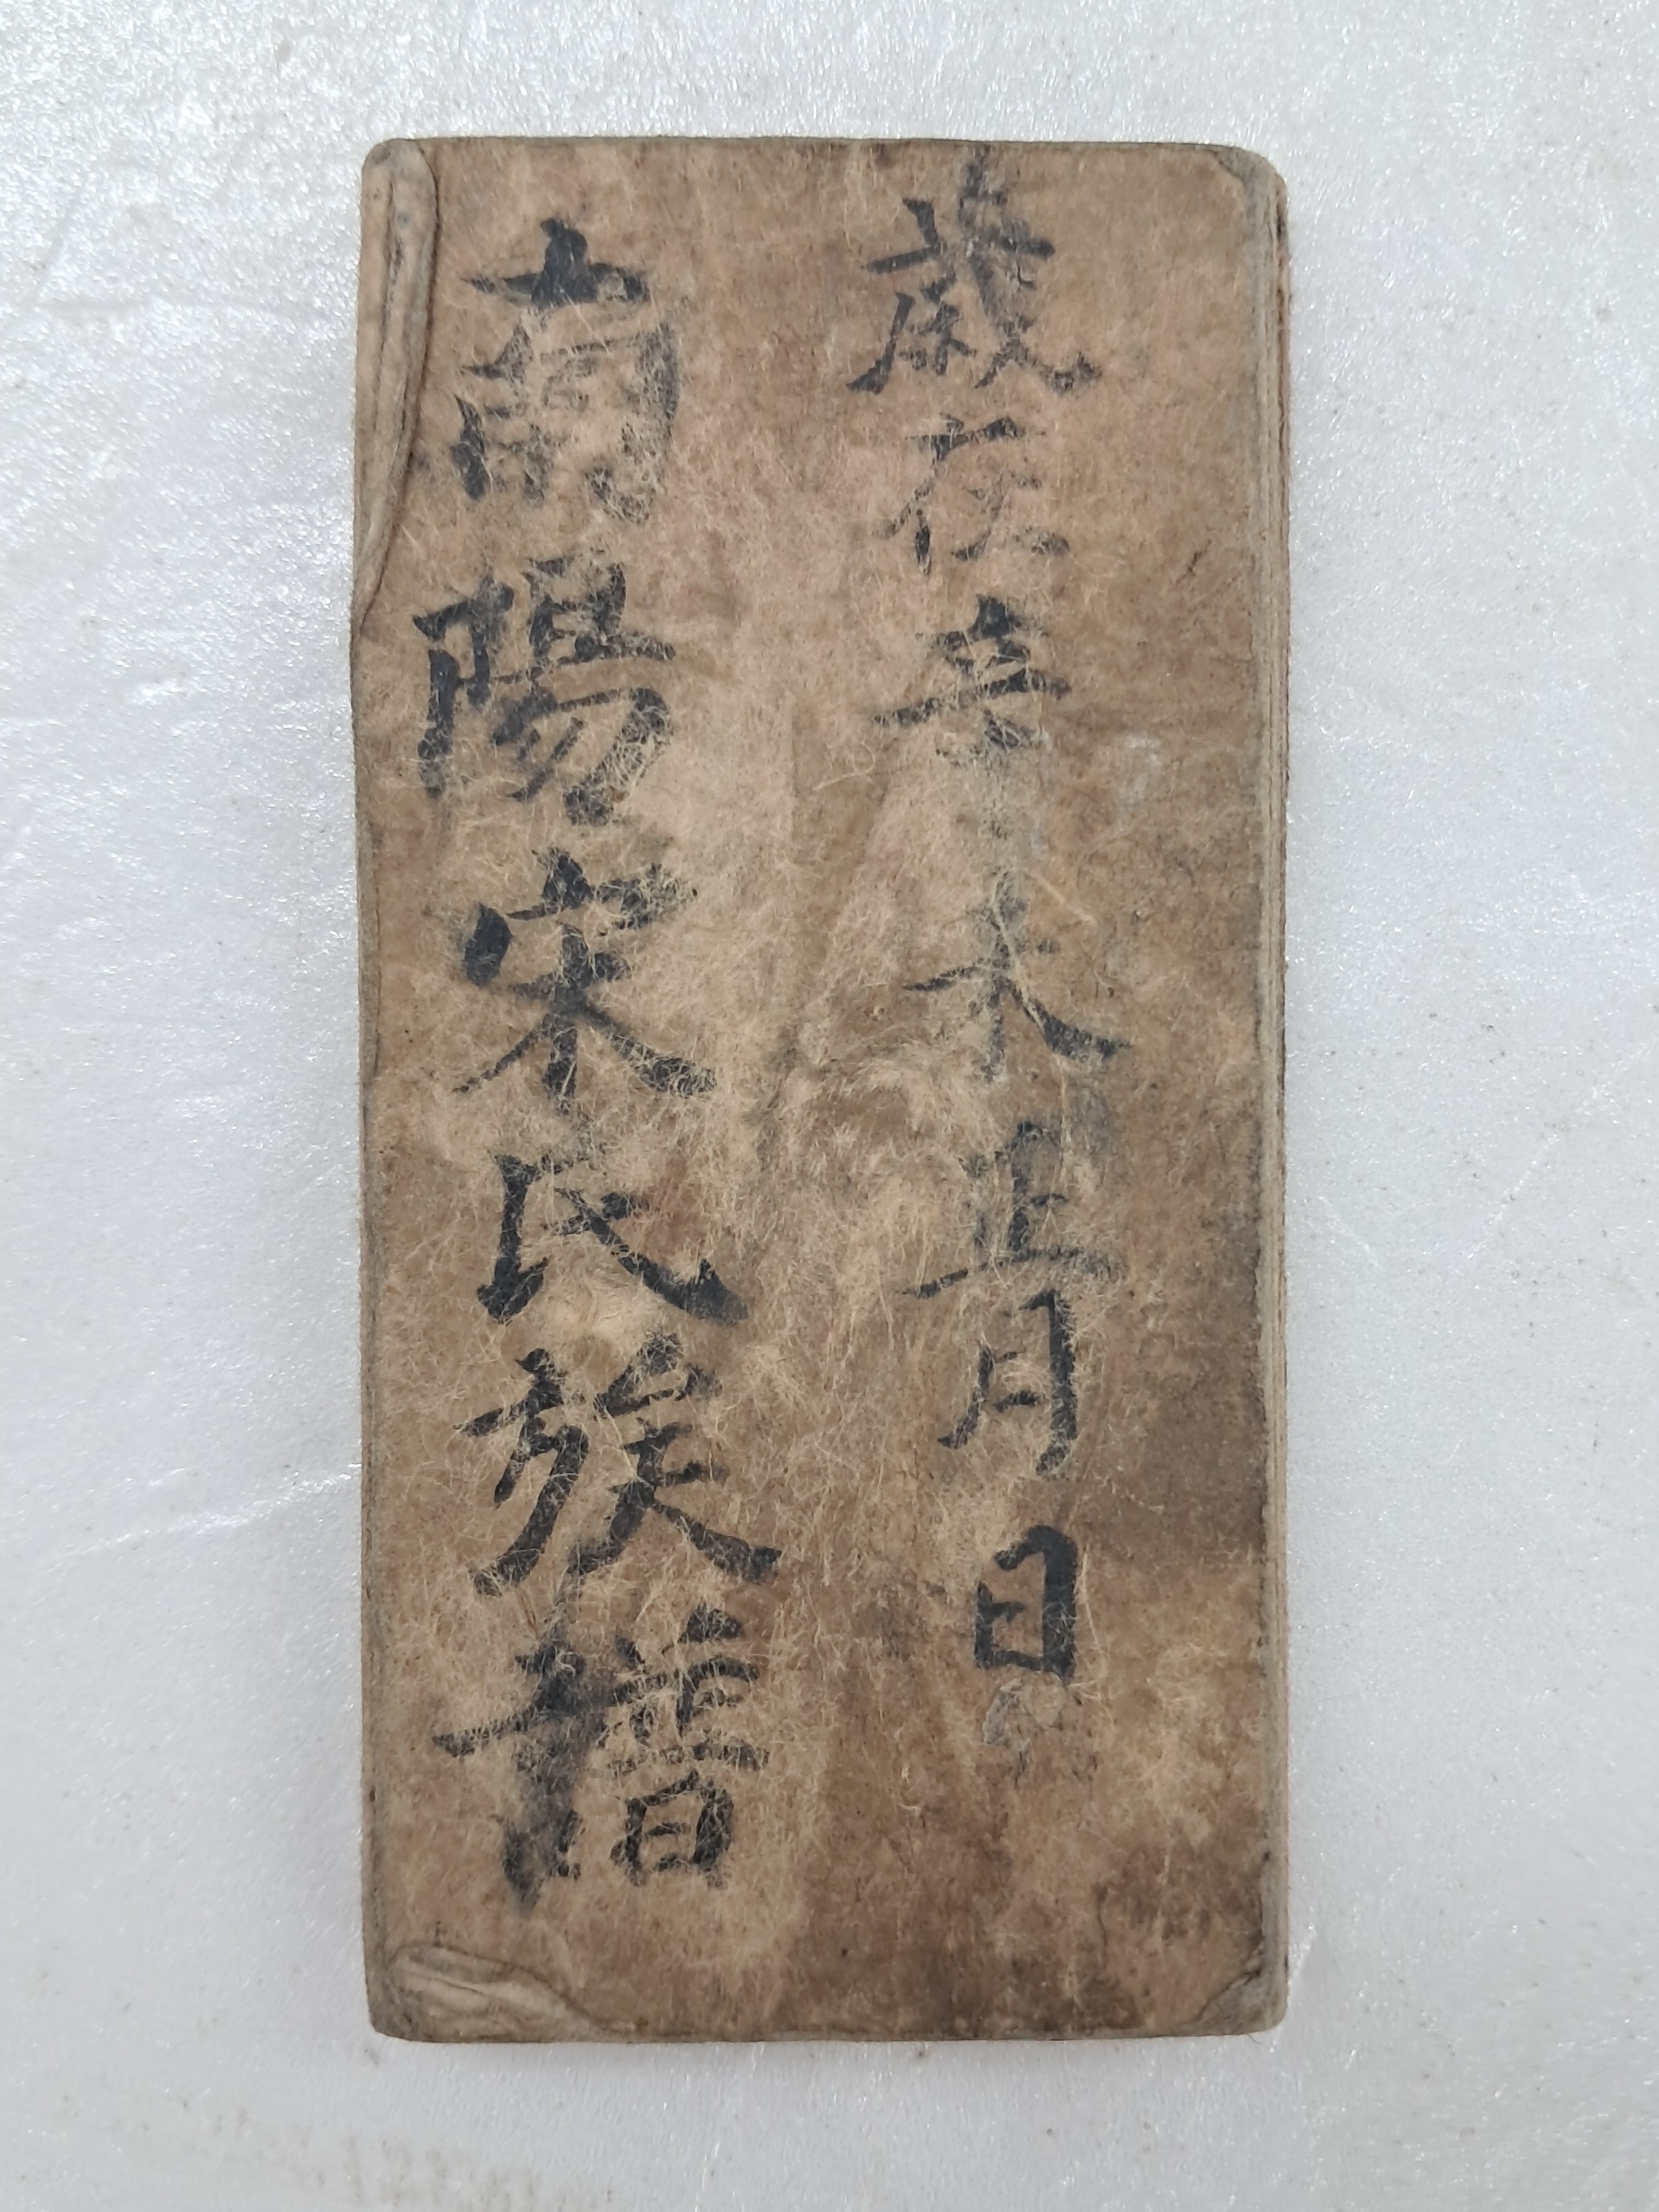 歲在辛未正月日
南陽宋氏族譜